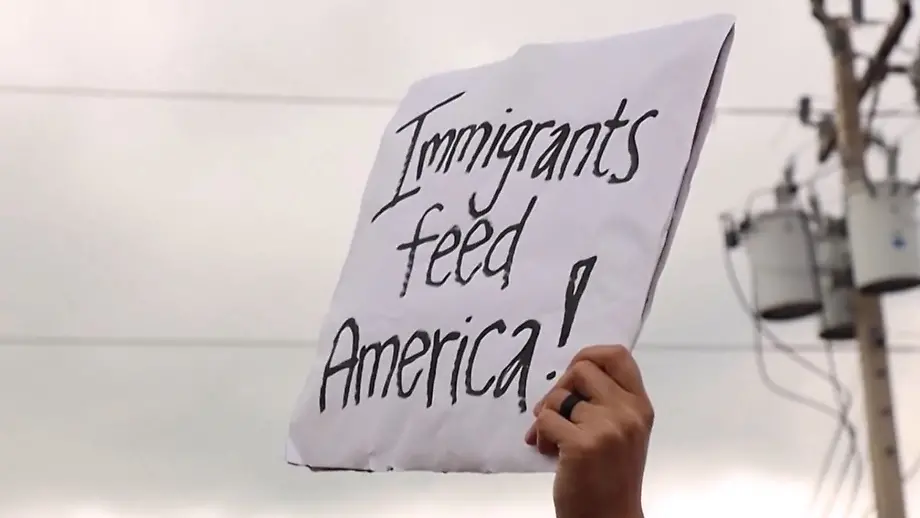 Immigrants
feed
America!